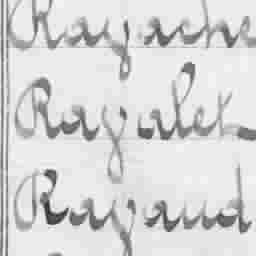 Rayache
Rayalet
Rayaud